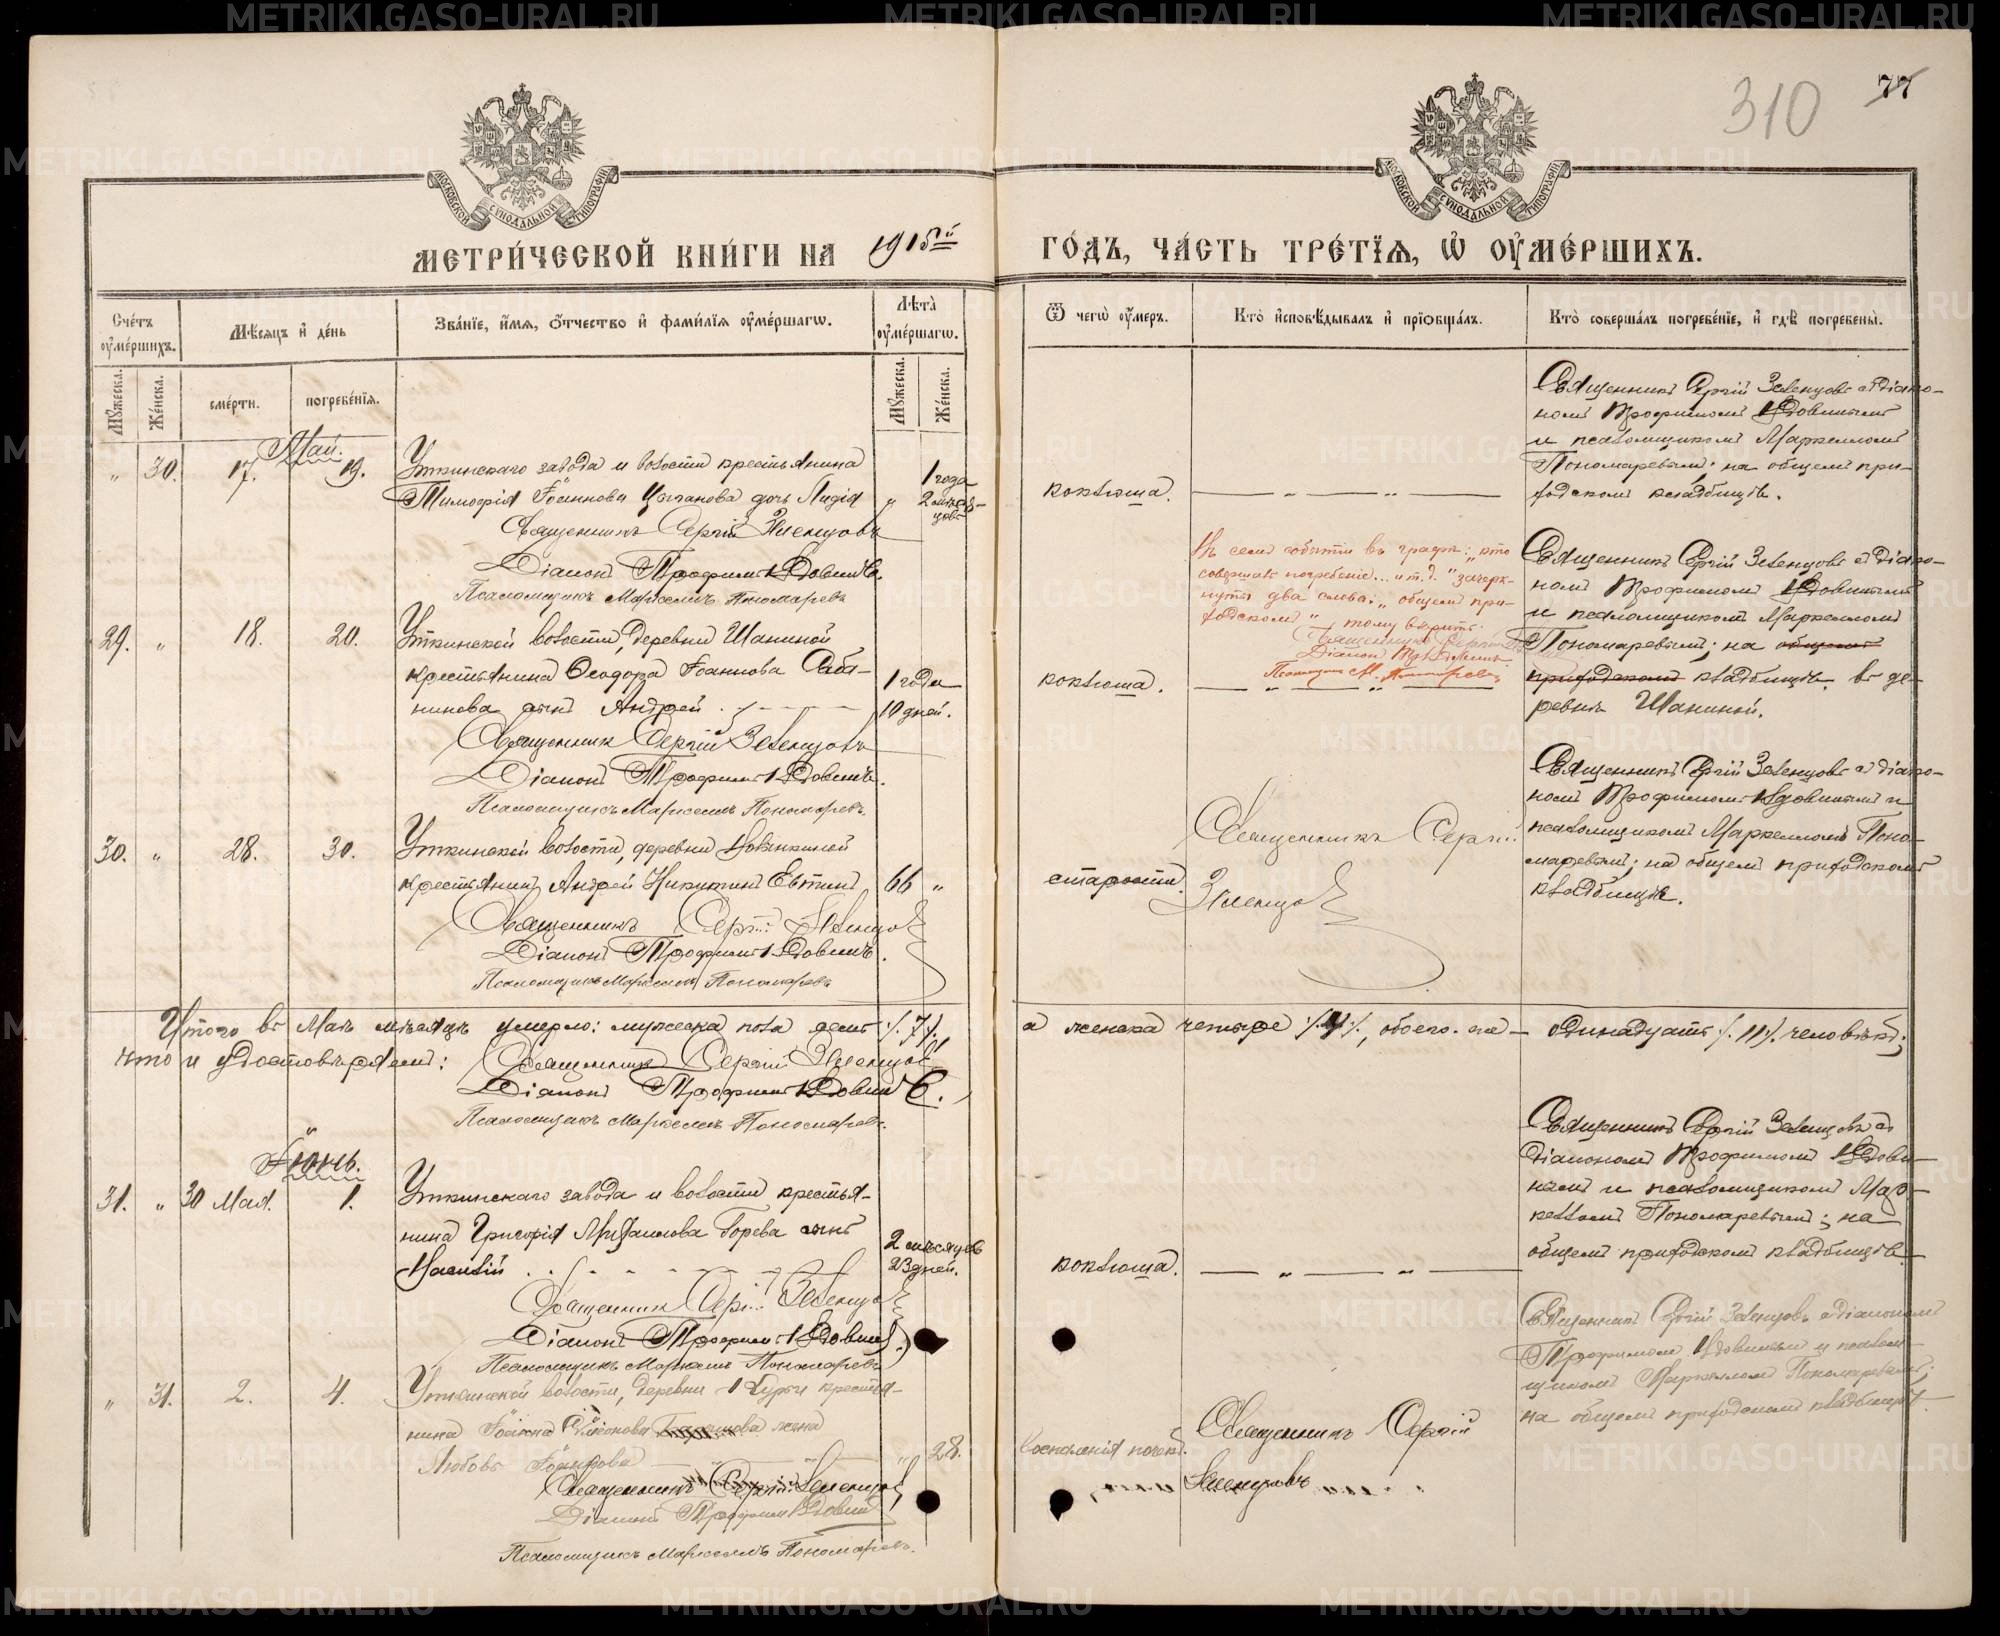 METRIKI.GASO-URAL.RU
310
77
МОСКОВСКОЙ СѴНОДАЛЬНОЙ ТИПОГРАФІИ
МОСКОВСКОЙ СѴНОДАЛЬНОЙ ТИПОГРАФІИ
МЕТРИ́ЧЕСКОЙ КНИ́ГИ НА 1915й ГО́ДЪ, ЧА́СТЬ ТРЕ́ТІЯ, Ѡ҆ ОУ҆МЕ́РШИХЪ.
Сче́тъ оу҆ме́ршихъ.
Мѣ́сяцъ и҆ де́нь
Зва́ніе, и҆́мя, ѻ҆́тчество и҆ фами́лія оу҆ме́ршагѡ.
Лѣ́та оу҆ме́ршагѡ.
Ѿ чегѡ̀ оу҆́меръ.
Кто̀ и҆сповѣ́дывалъ и҆ прїѡбща́лъ.
Кто̀ соверша́лъ погребе́ніе, и҆ гдѣ̀ погребены̀.
Мꙋ́жеска.
Же́нска.
сме́рти.
погребе́нія.
Мꙋ́жеска.
Же́нска.
Май.
" 30. 17. 19.
Уткинскаго завода и волости крестьянина
Тимофія Іоаннова Цыганова дочь Лидія
" 1 года 2 мѣсяцовъ
Священникъ Сергій Зеленцовъ
Діаконъ Трофимъ Вдовинъ.
Псаломщикъ Маркеллъ Пономаревъ
коклюша.
Священникъ Сергій Зеленцовъ съ діако-
номъ Трофимомъ Вдовинымъ
и псаломщикомъ Маркелломъ
Пономаревымъ; на общемъ при-
ходскомъ кладбищѣ.
29. " 18. 20.
Уткинской волости, деревни Шаниной
крестьянина Ѳеодора Іоаннова Саби-
нинова сынъ Андрей
1 года
10 дней.
Священникъ Сергій Зеленцовъ
Діаконъ Трофимъ Вдовинъ.
Псаломщикъ Маркеллъ Пономаревъ.
коклюша.
Въ семъ событіи въ графѣ: "кто
совершалъ погребеніе... и т. д." зачерк-
нуты два слова: "общемъ при-
ходскомъ", тому вѣрить.
Священникъ Сергій
Діаконъ Тр. Вдовинъ
Псаломщикъ М. Пономаревъ
Священникъ Сергій Зеленцовъ съ діако-
номъ Трофимомъ Вдовинымъ
и псаломщикомъ Маркелломъ
Пономаревымъ; на общемъ
приходскомъ кладбищѣ въ де-
ревнѣ Шаниной.
30. " 28. 30.
Уткинской волости, деревни
крестьянинъ Андрей Никитинъ Евтинъ
66 "
Священникъ Сергій Зеленцовъ
Діаконъ Трофимъ Вдовинъ.
Псаломщикъ Маркеллъ Пономаревъ
старости.
Священникъ Сергій
Зеленцовъ
Священникъ Сергій Зеленцовъ съ діако-
номъ Трофимомъ Вдовинымъ и
псаломщикомъ Маркелломъ Поно-
маревымъ; на общемъ приходскомъ
кладбищѣ.
Итого въ Маѣ мѣсяцѣ умерло: мужеска пола семь /.7/., а женска четыре /.4/., обоего же одинадцать /.11/. человѣкъ;
что и удостовѣряемъ:
Священникъ Сергій Зеленцовъ
Діаконъ Трофимъ Вдовинъ.
Псаломщикъ Маркеллъ Пономаревъ.
Іюнь.
31. " 30 Мая. 1.
Уткинскаго завода и волости крестья-
нина Григорія Михаилова Горева сынъ
Василій
2 мѣсяцовъ
23 дней.
Священникъ Сергій Зеленцовъ
Діаконъ Трофимъ Вдовинъ
Псаломщикъ Маркеллъ Пономаревъ
коклюша.
Священникъ Сергій Зеленцовъ съ
діакономъ Трофимомъ Вдови-
нымъ и псаломщикомъ Мар-
келломъ Пономаревымъ; на
общемъ приходскомъ кладбищѣ.
" 31. 2. 4.
Уткинской волости, деревни Курьи крестья-
нина Іоанна Симеонова жена
Любовь Іоаннова
" 28.
Священникъ Сергій Зеленцовъ
Діаконъ Трофимъ Вдовинъ
Псаломщикъ Маркеллъ Пономаревъ.
воспаленія почекъ.
Священникъ Сергій
Зеленцовъ
Священникъ Сергій Зеленцовъ съ діакономъ
Трофимомъ Вдовинымъ и псалом-
щикомъ Маркелломъ Пономаревымъ;
на общемъ приходскомъ кладбищѣ.